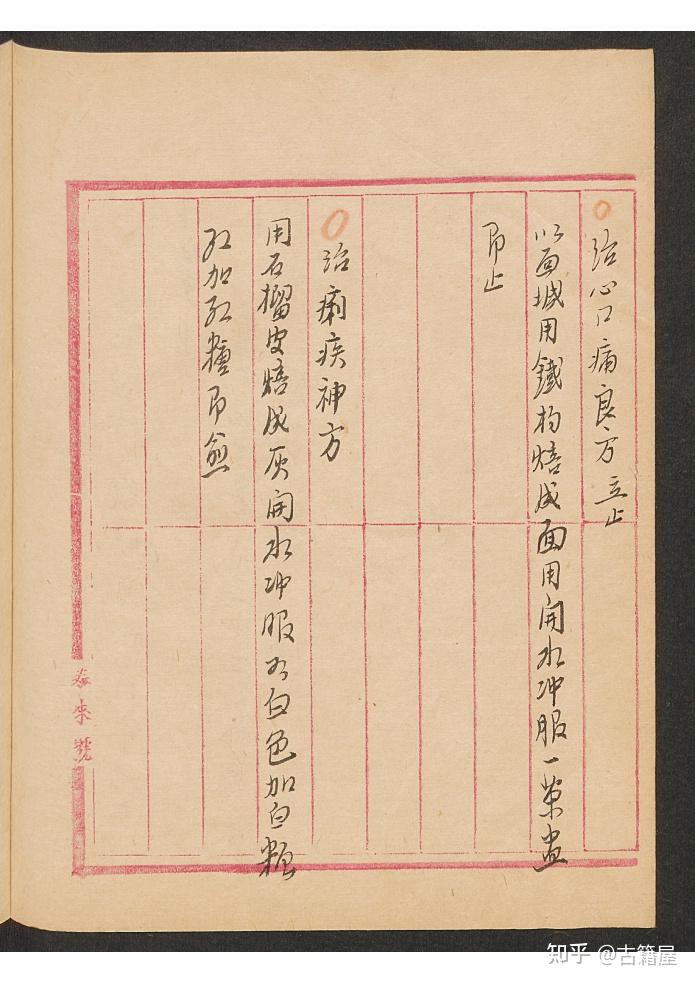 治心口痛良方 立止
以面堿用鐵杓焙成面用開水冲服一茶盅
即止
治痢疾神方
用石榴皮焙成灰開水冲服為白色加白糖
紅加紅糖即愈
泰來號
知乎 @古籍屋